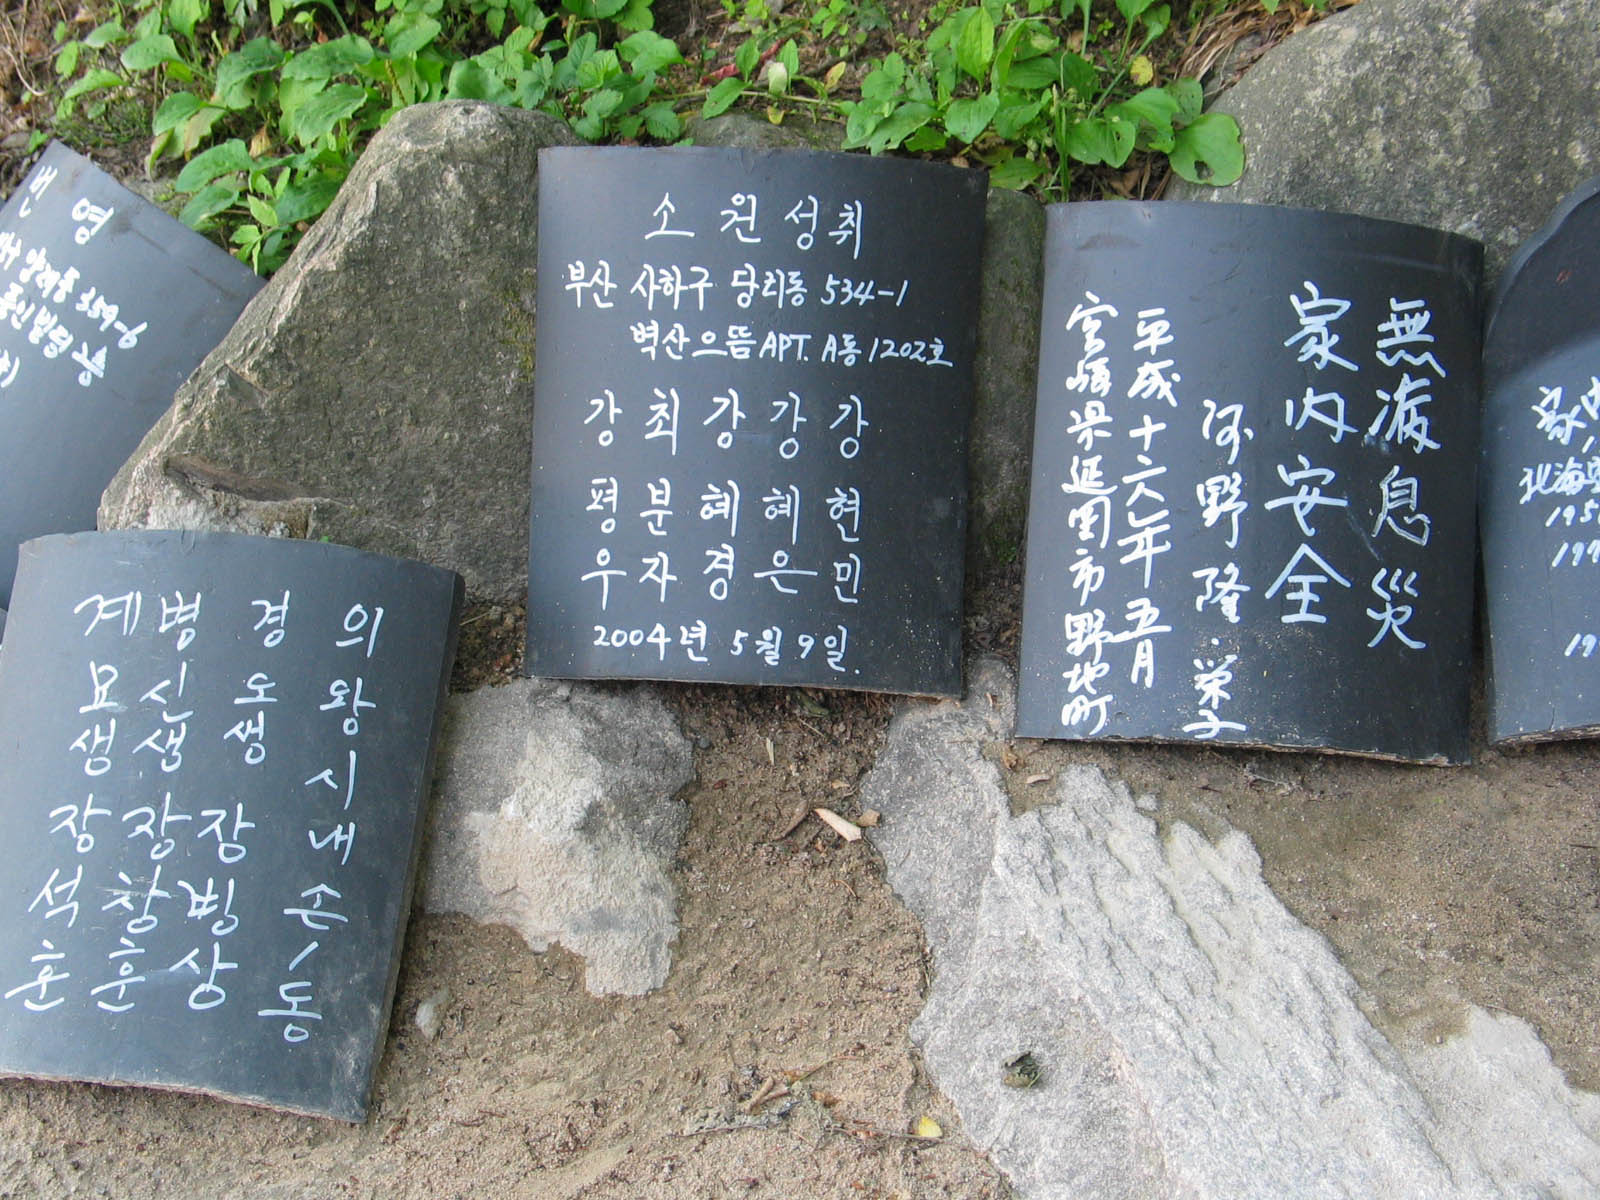 번영
359-6
소원성취
부산 사하구 당리동 534-1
벽산으뜸APT. A동 1202호
강 최 강 강 강
평 분 혜 혜 현
우 자 경 은 민
2004년 5월 9일.
無病息災
家内安全
河野隆・栄子
平成十六年五月
宮崎県延岡市野地町
의왕시내손1동
경오생 장빙상
병신생 장창훈
계묘생 장석훈
家内
北海
195
197
19